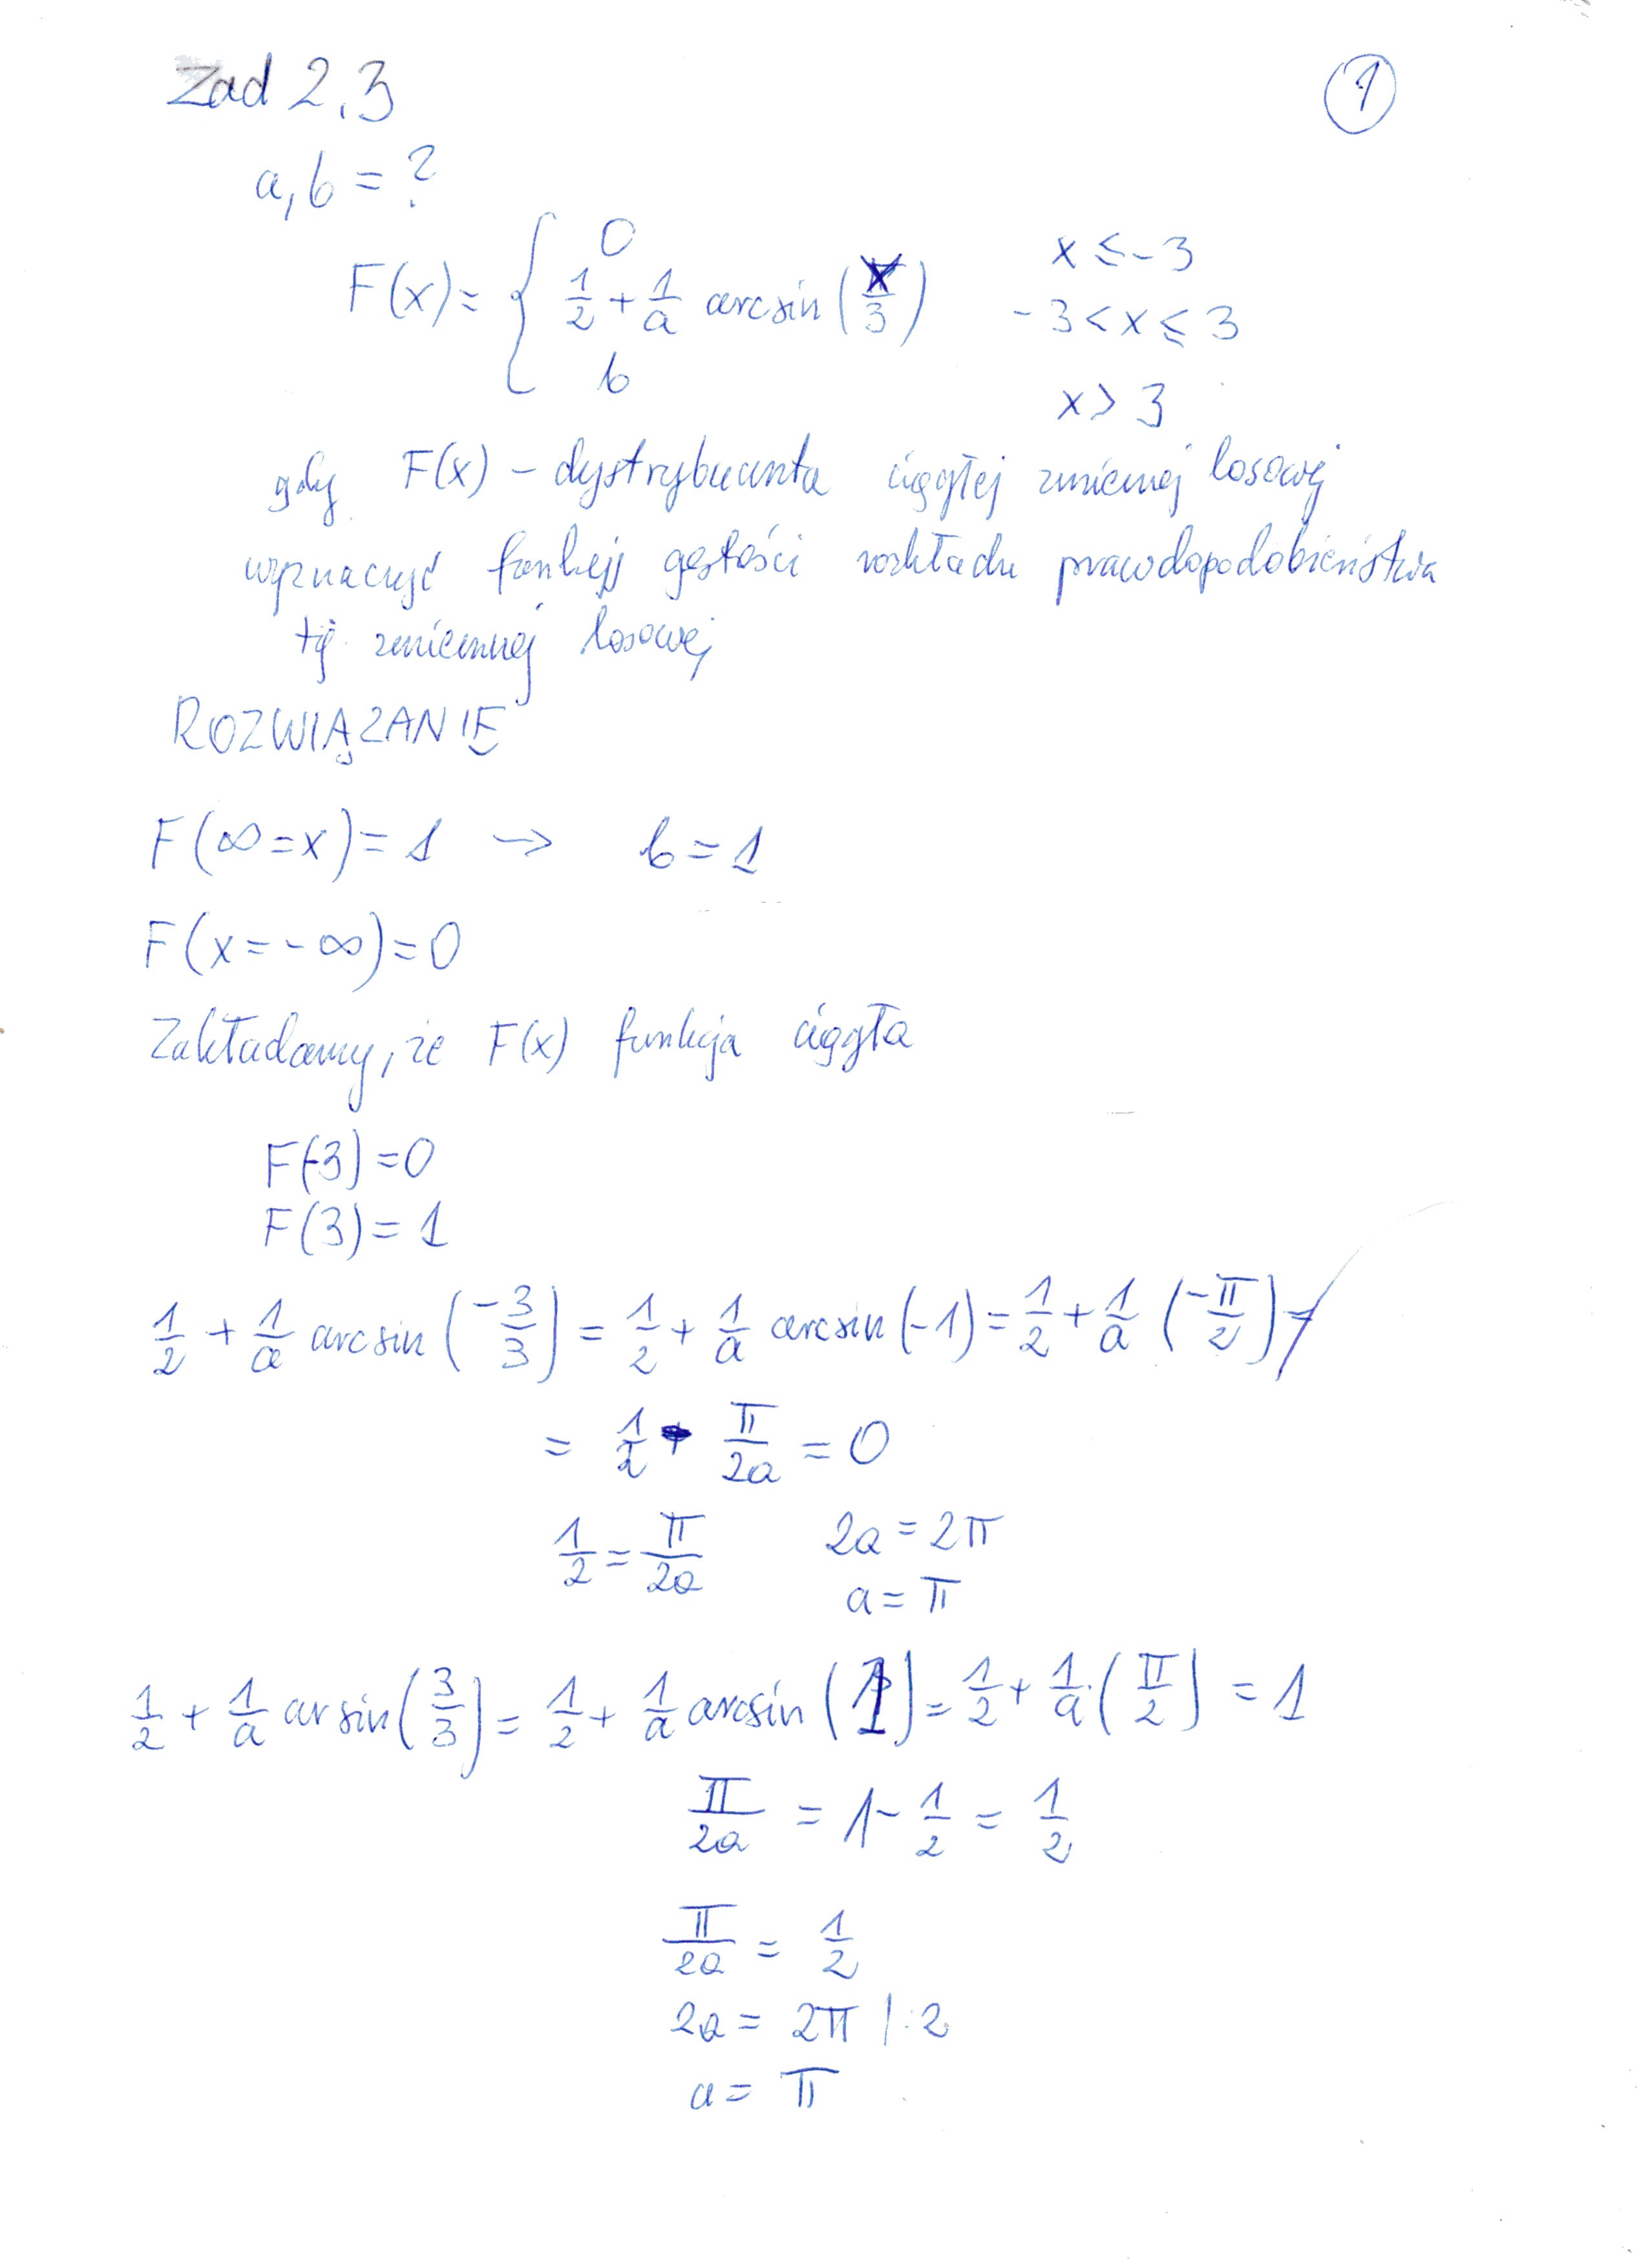 Zad 2.3
1
a, b = ?
F(x) = { 0   x ≤ -3
1/2 + 1/a arcsin(x/3)   -3 < x ≤ 3
b   x > 3
gdy F(x) - dystrybuanta ciągłej zmiennej losowej
wyznaczyć funkcję gęstości rozkładu prawdopodobieństwa
tej zmiennej losowej
ROZWIĄZANIE
F(∞=x) = 1 → b = 1
F(x=-∞) = 0
Zakładamy, że F(x) funkcja ciągła
F(-3) = 0
F(3) = 1
1/2 + 1/a arcsin(-3/3) = 1/2 + 1/a arcsin(-1) = 1/2 + 1/a (-π/2) =
= 1/2 - π/2a = 0
1/2 = π/2a   2a = 2π
a = π
1/2 + 1/a arsin(3/3) = 1/2 + 1/a arcsin(1) = 1/2 + 1/a · (π/2) = 1
π/2a = 1 - 1/2 = 1/2
π/2a = 1/2
2a = 2π | : 2
a = π